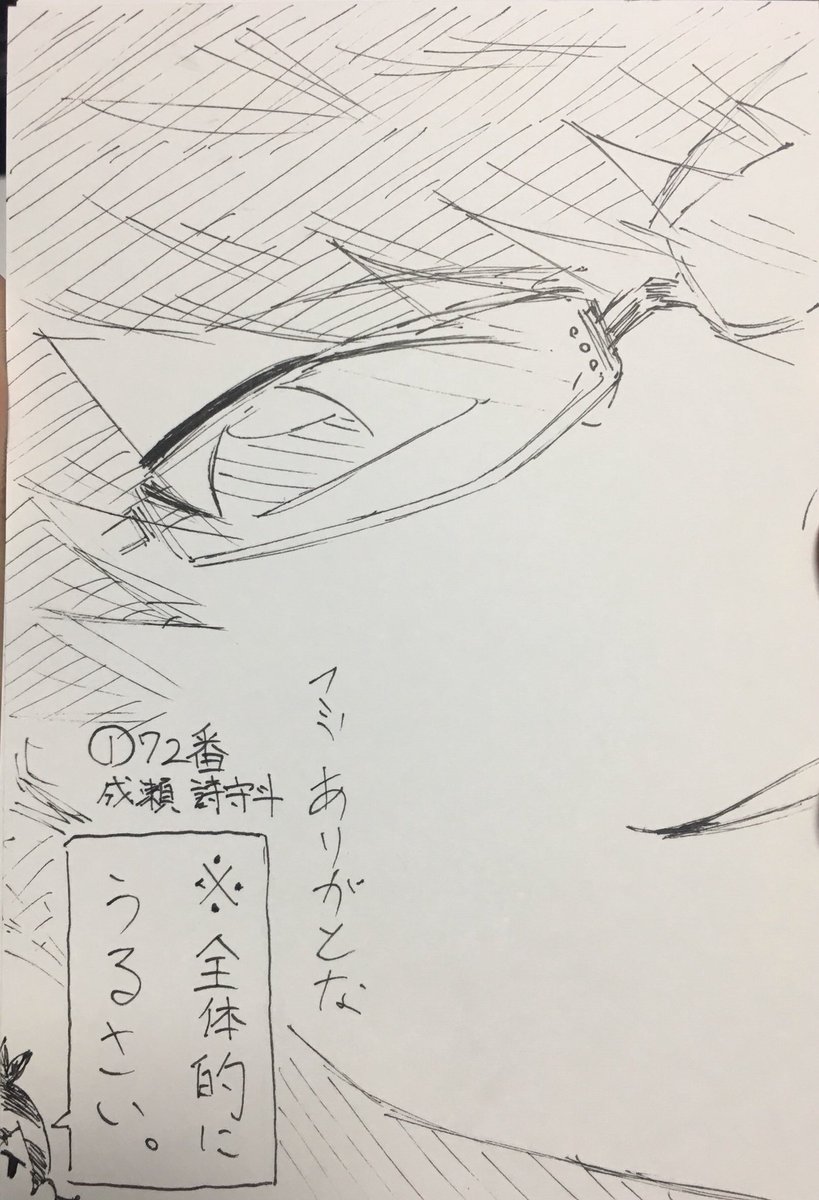 フミ ありがとな
①72番
成瀬 詩守斗
※全体的に
うるさい。